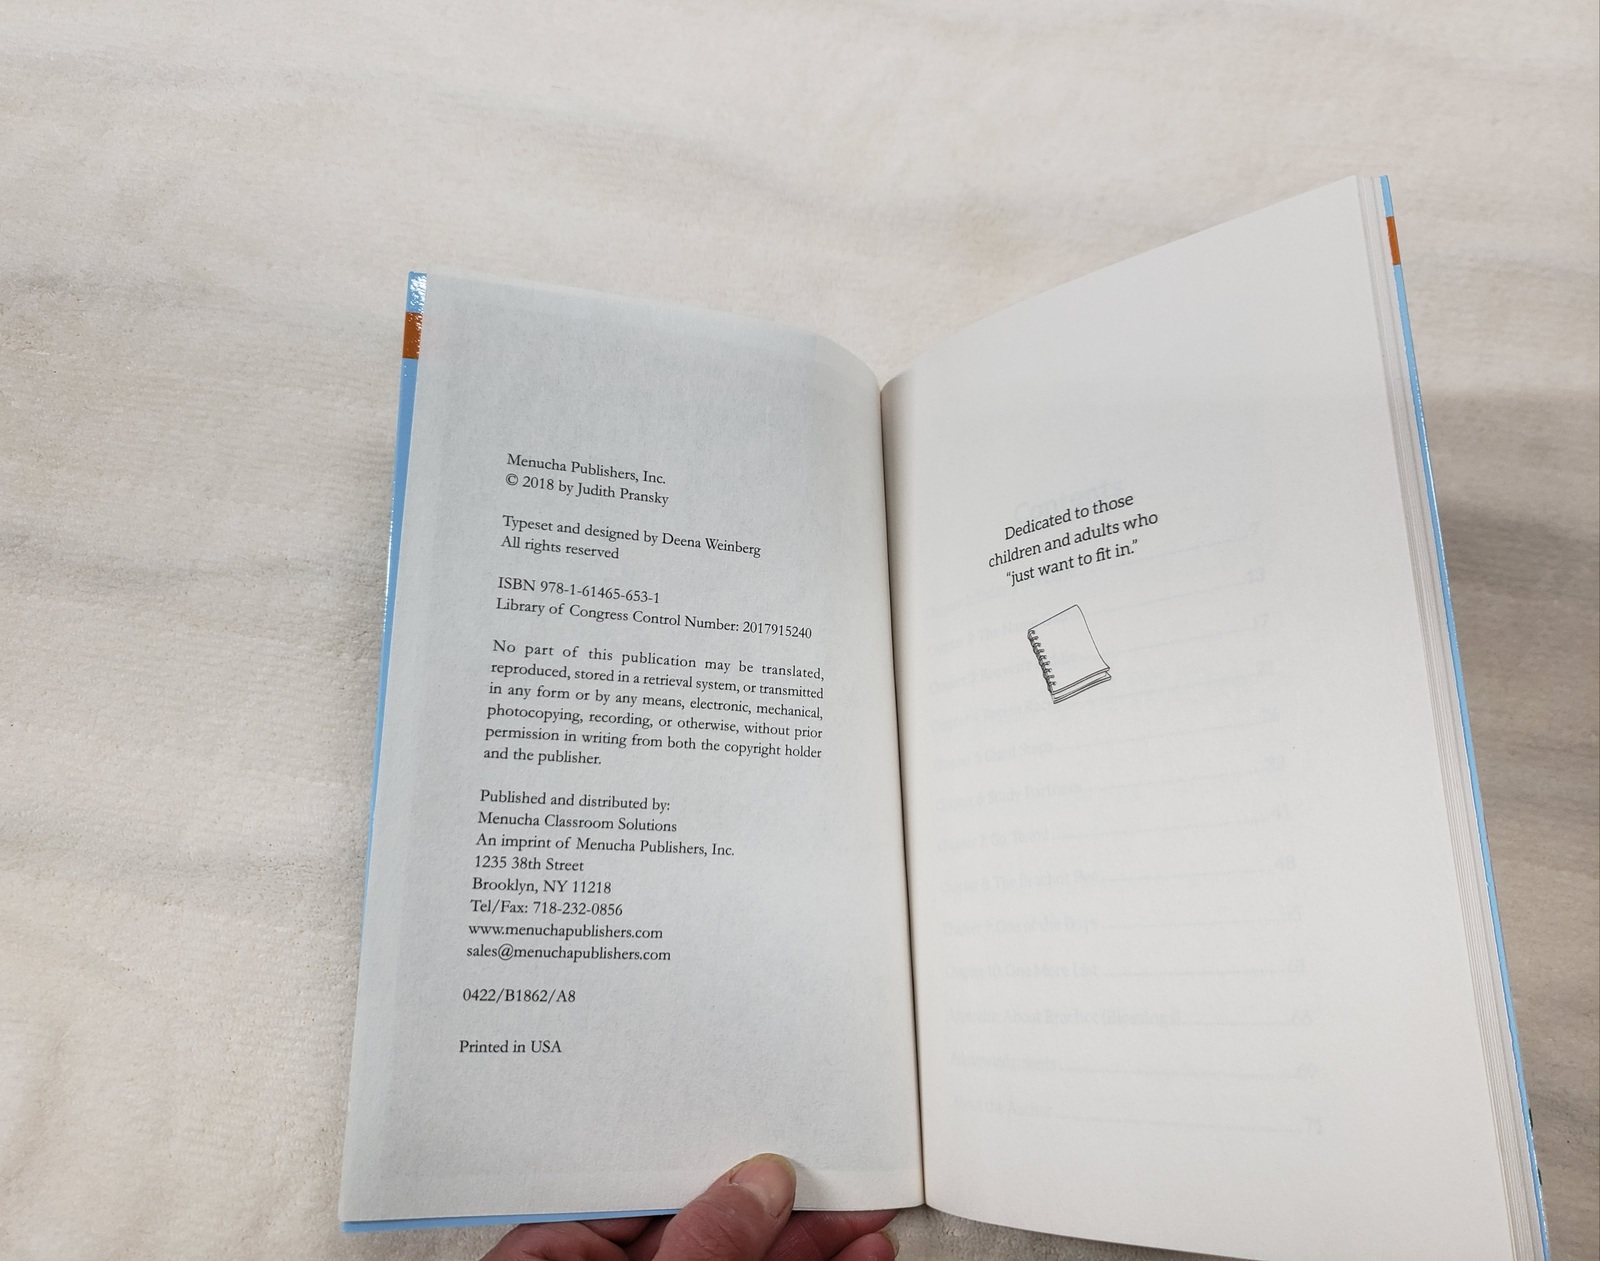 Menucha Publishers, Inc.
© 2018 by Judith Pransky
Typeset and designed by Deena Weinberg
All rights reserved
ISBN 978-1-61465-653-1
Library of Congress Control Number: 2017915240
No part of this publication may be translated,
reproduced, stored in a retrieval system, or transmitted
in any form or by any means, electronic, mechanical,
photocopying, recording, or otherwise, without prior
permission in writing from both the copyright holder
and the publisher.
Published and distributed by:
Menucha Classroom Solutions
An imprint of Menucha Publishers, Inc.
1235 38th Street
Brooklyn, NY 11218
Tel/Fax: 718-232-0856
www.menuchapublishers.com
sales@menuchapublishers.com
0422/B1862/A8
Printed in USA
Dedicated to those
children and adults who
“just want to fit in.”